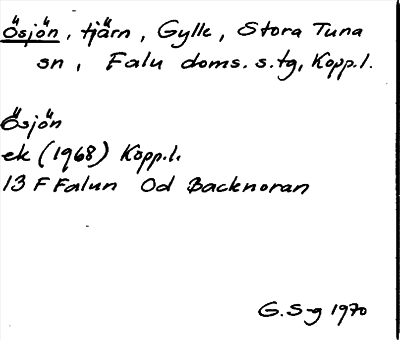 Ösjön, tjärn, Gylle, Stora Tuna
sn, Falu doms. s. tg, Kopp. l.
Ösjön
ek (1968) Kopp. l.
13 F Falun Od Backnoran
G. S-g 1970